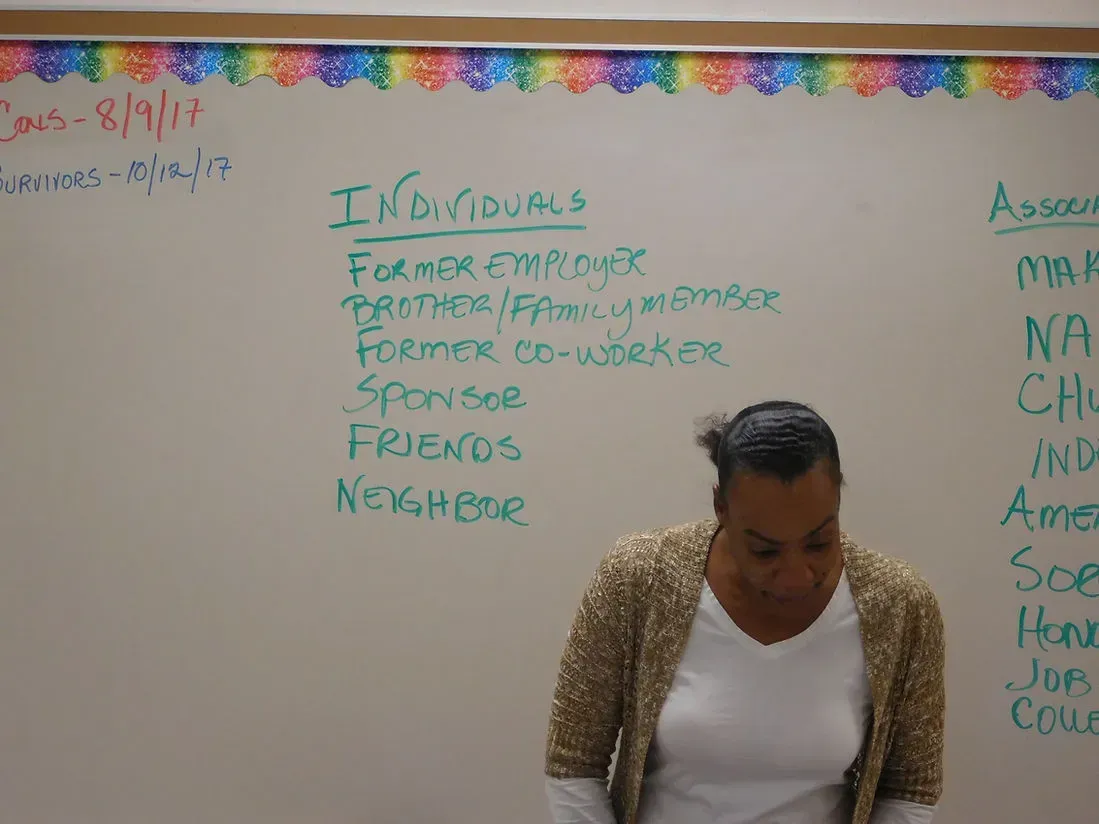 - 8/9/17
SURVIVORS - 10/12/17
INDIVIDUALS
FORMER EMPLOYER
BROTHER/FAMILY MEMBER
FORMER CO-WORKER
SPONSOR
FRIENDS
NEIGHBOR
ASSOCIA
MAK
NA
CHU
IND
AMER
SOB
HON
JOB
COLLE